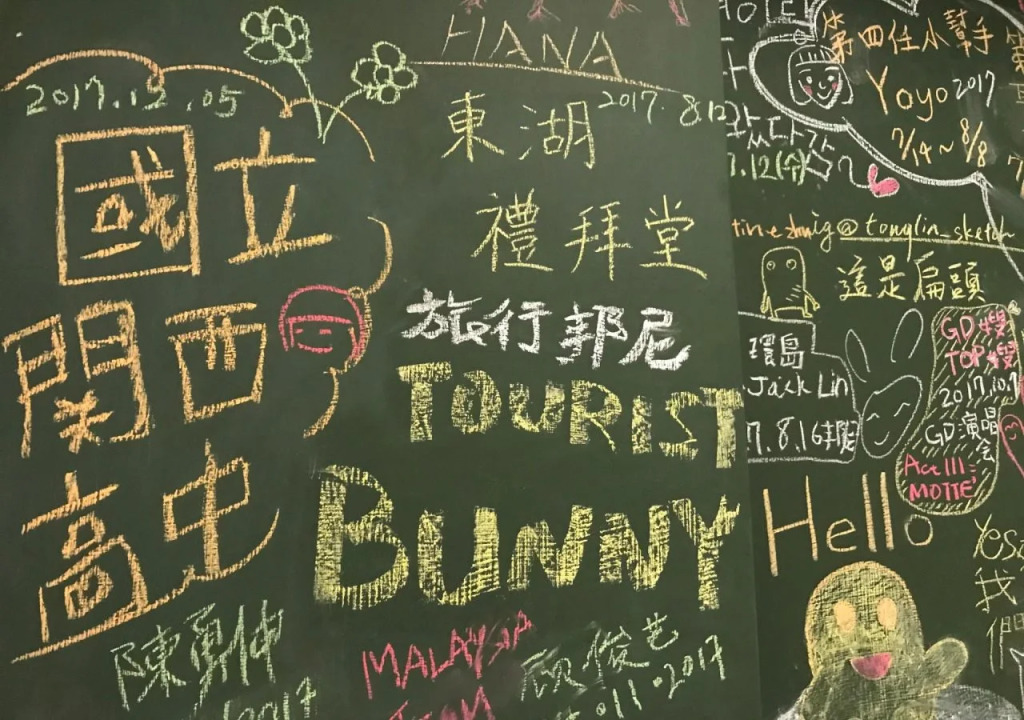 HANA
2017.12.05
國立
関西
高中
東湖
2017. 8.12
禮拜堂
旅行邦尼
TOURIST
BUNNY
陳勇仲
2017
MALAYSIA
顧俊艺
2017
HOTEL
第四任小幫手
Yoyo 2017
7/14~8/8
@tonglin_sketch
這是扁頭
環島
Jack Lin
GD嫂
TOP嫂
2017.10.7
GD演唱會
Act III:
MOTTE
Hello
Yes
我
們